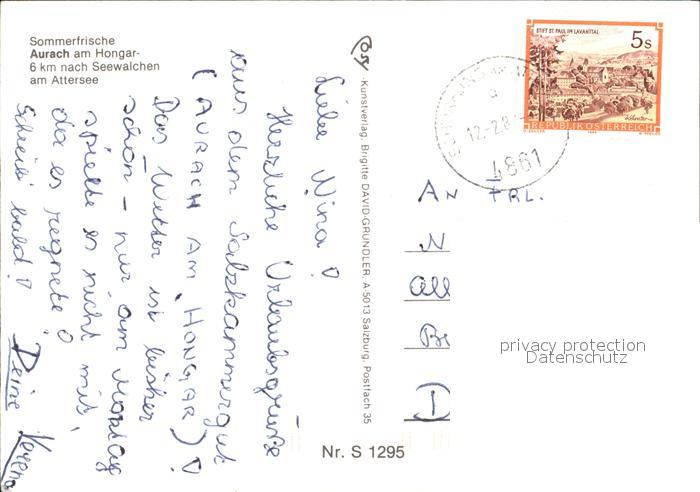 Sommerfrische
Aurach am Hongar-
6 km nach Seewalchen
am Attersee
Liebe Nina!
Herzliche Urlaubsgrüße
aus dem Salzkammergut
(AURACH AM HONGAR)!
Das Wetter ist bisher
schön - nur am Montag
spielte es nicht mit,
da es regnete!
Schreib bald!
Deine Verena
Kunstverlag, Brigitte DAVID-GRÜNDLER, A-5013 Salzburg, Postfach 35
Nr. S 1295
STIFT ST. PAUL IM LAVANTTAL
5s
REPUBLIK ÖSTERREICH
a
4861
AN FRL.
N
all
D
privacy protection
Datenschutz